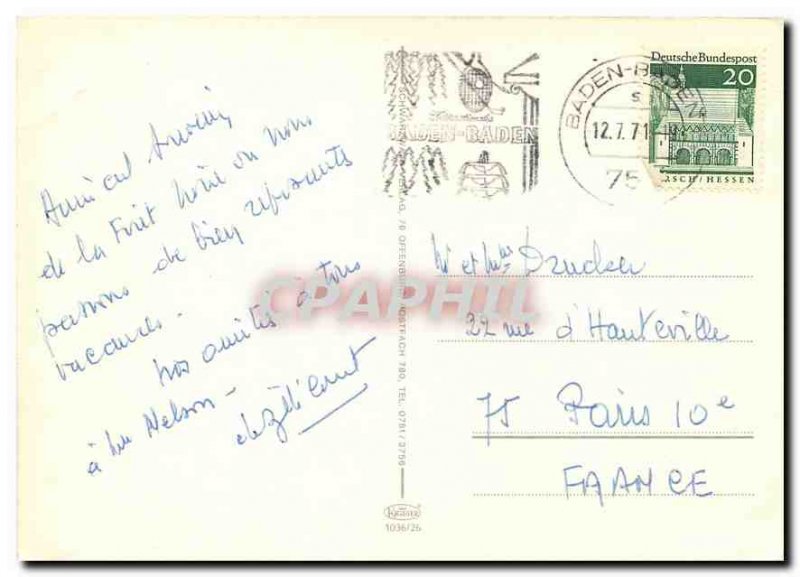 Amical souvenir
de la Forêt Noire où nous
passons de bien reposantes
vacances -
nos amitiés à tous
à Nelson -
BADEN-BADEN
BADEN-BADEN
12.7.71
75
Deutsche Bundespost
20
RSCH/HESSEN
Mr et Mme Drucker
22 rue d'Hauteville
75 Paris 10e
FRANCE
OFFENBURG, POSTFACH 780, TEL. 0781/3756
KRÜGER
1036/26
CPAPHIL